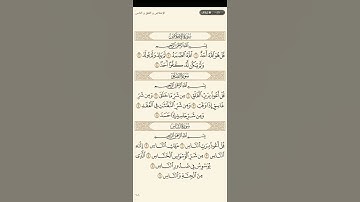 سُورَةُ الإِخْلَاصِ
بِسْمِ ٱللَّهِ ٱلرَّحْمَٰنِ ٱلرَّحِيمِ
قُلْ هُوَ ٱللَّهُ أَحَدٌ ۝ ٱللَّهُ ٱلصَّمَدُ ۝ لَمْ يَلِدْ وَلَمْ يُولَدْ ۝
وَلَمْ يَكُن لَّهُۥ كُفُوًا أَحَدٌۢ ۝
سُورَةُ الفَلَقِ
بِسْمِ ٱللَّهِ ٱلرَّحْمَٰنِ ٱلرَّحِيمِ
قُلْ أَعُوذُ بِرَبِّ ٱلْفَلَقِ ۝ مِن شَرِّ مَا خَلَقَ ۝ وَمِن شَرِّ
غَاسِقٍ إِذَا وَقَبَ ۝ وَمِن شَرِّ ٱلنَّفَّٰثَٰتِ فِى ٱلْعُقَدِ ۝
وَمِن شَرِّ حَاسِدٍ إِذَا حَسَدَ ۝
سُورَةُ النَّاسِ
بِسْمِ ٱللَّهِ ٱلرَّحْمَٰنِ ٱلرَّحِيمِ
قُلْ أَعُوذُ بِرَبِّ ٱلنَّاسِ ۝ مَلِكِ ٱلنَّاسِ ۝ إِلَٰهِ
ٱلنَّاسِ ۝ مِن شَرِّ ٱلْوَسْوَاسِ ٱلْخَنَّاسِ ۝ ٱلَّذِى
يُوَسْوِسُ فِى صُدُورِ ٱلنَّاسِ ۝
مِنَ ٱلْجِنَّةِ وَٱلنَّاسِ ۝